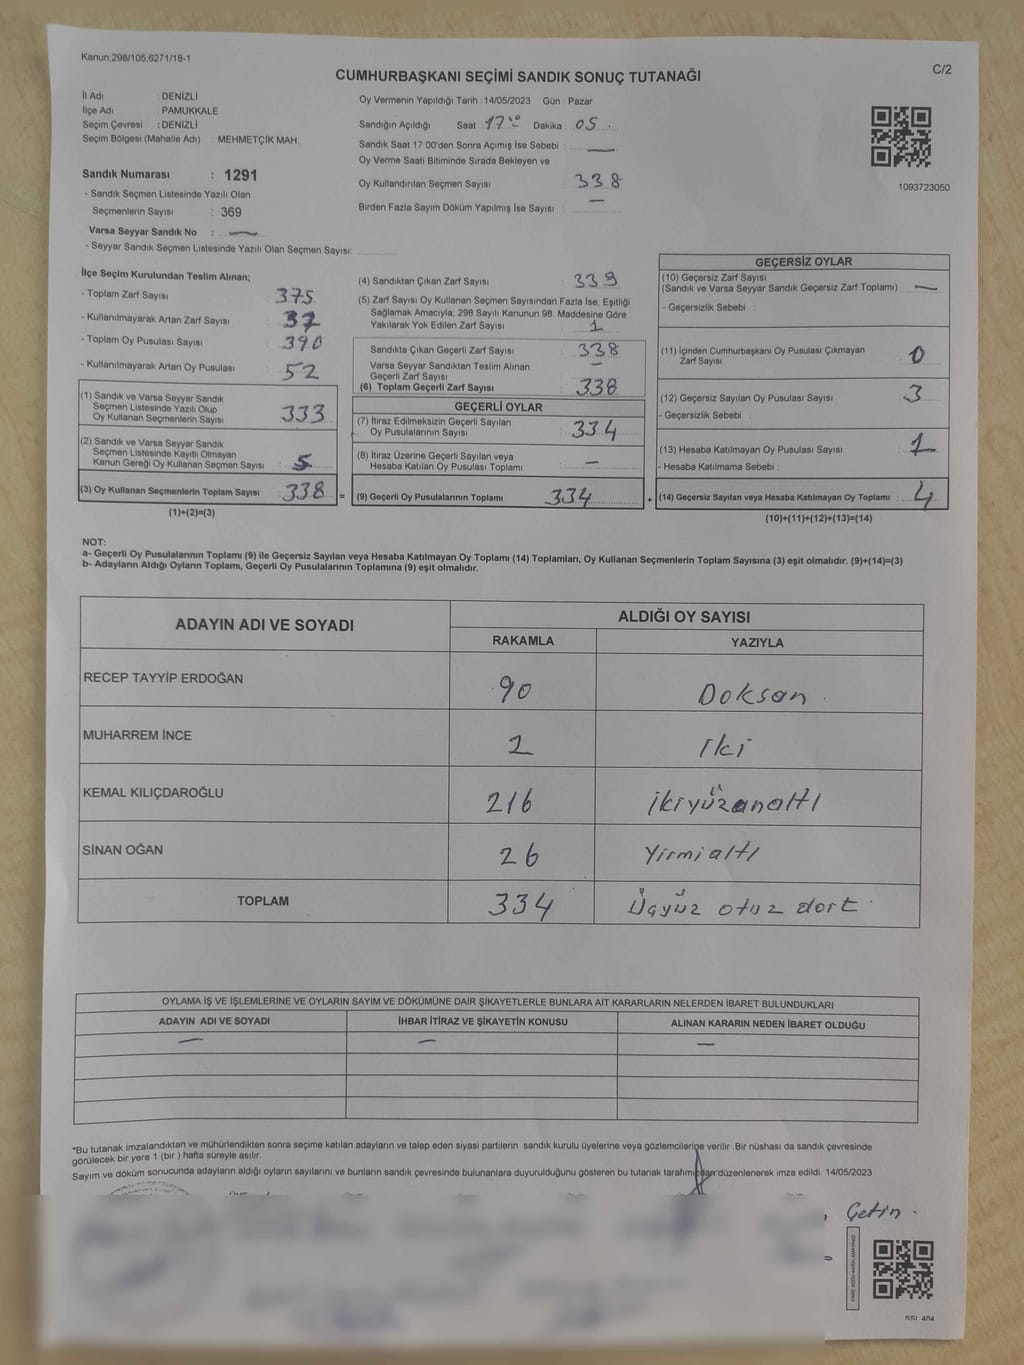 Kanun:298/105,6271/18-1
C/2
CUMHURBAŞKANI SEÇİMİ SANDIK SONUÇ TUTANAĞI
İl Adı : DENİZLİ
İlçe Adı : PAMUKKALE
Seçim Çevresi : DENİZLİ
Seçim Bölgesi (Mahalle Adı) : MEHMETÇİK MAH.
Sandık Numarası : 1291
- Sandık Seçmen Listesinde Yazılı Olan
Seçmenlerin Sayısı : 369
Varsa Seyyar Sandık No : —
- Seyyar Sandık Seçmen Listesinde Yazılı Olan Seçmen Sayısı:
Oy Vermenin Yapıldığı Tarih : 14/05/2023 Gün : Pazar
Sandığın Açıldığı Saat : 17.00 Dakika : 05
Sandık Saat 17:00'den Sonra Açımış İse Sebebi : —
Oy Verme Saati Bitiminde Sırada Bekleyen ve
Oy Kullandırılan Seçmen Sayısı : 338
Birden Fazla Sayım Döküm Yapılmış İse Sayısı : —
1093723050
İlçe Seçim Kurulundan Teslim Alınan;
- Toplam Zarf Sayısı : 375
- Kullanılmayarak Artan Zarf Sayısı : 37
- Toplam Oy Pusulası Sayısı : 390
- Kullanılmayarak Artan Oy Pusulası : 52
(1) Sandık ve Varsa Seyyar Sandık
Seçmen Listesinde Yazılı Olup
Oy Kullanan Seçmenlerin Sayısı : 333
(2) Sandık ve Varsa Seyyar Sandık
Seçmen Listesinde Kayıtlı Olmayan
Kanun Gereği Oy Kullanan Seçmen Sayısı : 5
(3) Oy Kullanan Seçmenlerin Toplam Sayısı : 338 =
(1)+(2)=(3)
(4) Sandıktan Çıkan Zarf Sayısı : 339
(5) Zarf Sayısı Oy Kullanan Seçmen Sayısından Fazla İse, Eşitliği
Sağlamak Amacıyla; 298 Sayılı Kanunun 98. Maddesine Göre
Yakılarak Yok Edilen Zarf Sayısı : 1
Sandıkta Çıkan Geçerli Zarf Sayısı : 338
Varsa Seyyar Sandıktan Teslim Alınan
Geçerli Zarf Sayısı : —
(6) Toplam Geçerli Zarf Sayısı : 338
GEÇERLİ OYLAR
(7) İtiraz Edilmeksizin Geçerli Sayılan
Oy Pusulalarının Sayısı : 334
(8) İtiraz Üzerine Geçerli Sayılan veya
Hesaba Katılan Oy Pusulası Toplamı : —
(9) Geçerli Oy Pusulalarının Toplamı 334 +
GEÇERSİZ OYLAR
(10) Geçersiz Zarf Sayısı
(Sandık ve Varsa Seyyar Sandık Geçersiz Zarf Toplamı) : —
- Geçersizlik Sebebi :
(11) İçinden Cumhurbaşkanı Oy Pusulası Çıkmayan
Zarf Sayısı : 0
(12) Geçersiz Sayılan Oy Pusulası Sayısı : 3
- Geçersizlik Sebebi :
(13) Hesaba Katılmayan Oy Pusulası Sayısı : 1
- Hesaba Katılmama Sebebi :
(14) Geçersiz Sayılan veya Hesaba Katılmayan Oy Toplamı : 4
(10)+(11)+(12)+(13)=(14)
NOT:
a- Geçerli Oy Pusulalarının Toplamı (9) ile Geçersiz Sayılan veya Hesaba Katılmayan Oy Toplamı (14) Toplamları, Oy Kullanan Seçmenlerin Toplam Sayısına (3) eşit olmalıdır. (9)+(14)=(3)
b- Adayların Aldığı Oyların Toplamı, Geçerli Oy Pusulalarının Toplamına (9) eşit olmalıdır.
ADAYIN ADI VE SOYADI ALDIĞI OY SAYISI
RAKAMLA YAZIYLA
RECEP TAYYİP ERDOĞAN 90 Doksan
MUHARREM İNCE 2 iki
KEMAL KILIÇDAROĞLU 216 ikiyüzonaltı
SİNAN OĞAN 26 Yirmialtı
TOPLAM 334 Üçyüz otuz dört
OYLAMA İŞ VE İŞLEMLERİNE VE OYLARIN SAYIM VE DÖKÜMÜNE DAİR ŞİKAYETLERLE BUNLARA AİT KARARLARIN NELERDEN İBARET BULUNDUKLARI
ADAYIN ADI VE SOYADI İHBAR İTİRAZ VE ŞİKAYETİN KONUSU ALINAN KARARIN NEDEN İBARET OLDUĞU
— — —
*Bu tutanak imzalandıktan ve mühürlendikten sonra seçime katılan adayların ve talep eden siyasi partilerin sandık kurulu üyelerine veya gözlemcilerine verilir. Bir nüshası da sandık çevresinde
görülecek bir yere 1 (bir) hafta süreyle asılır.
Sayım ve döküm sonucunda adayların aldığı oyların sayılarını ve bunların sandık çevresinde bulunanlara duyurulduğunu gösteren bu tutanak tarafımızdan düzenlenerek imza edildi. 14/05/2023
Çetin